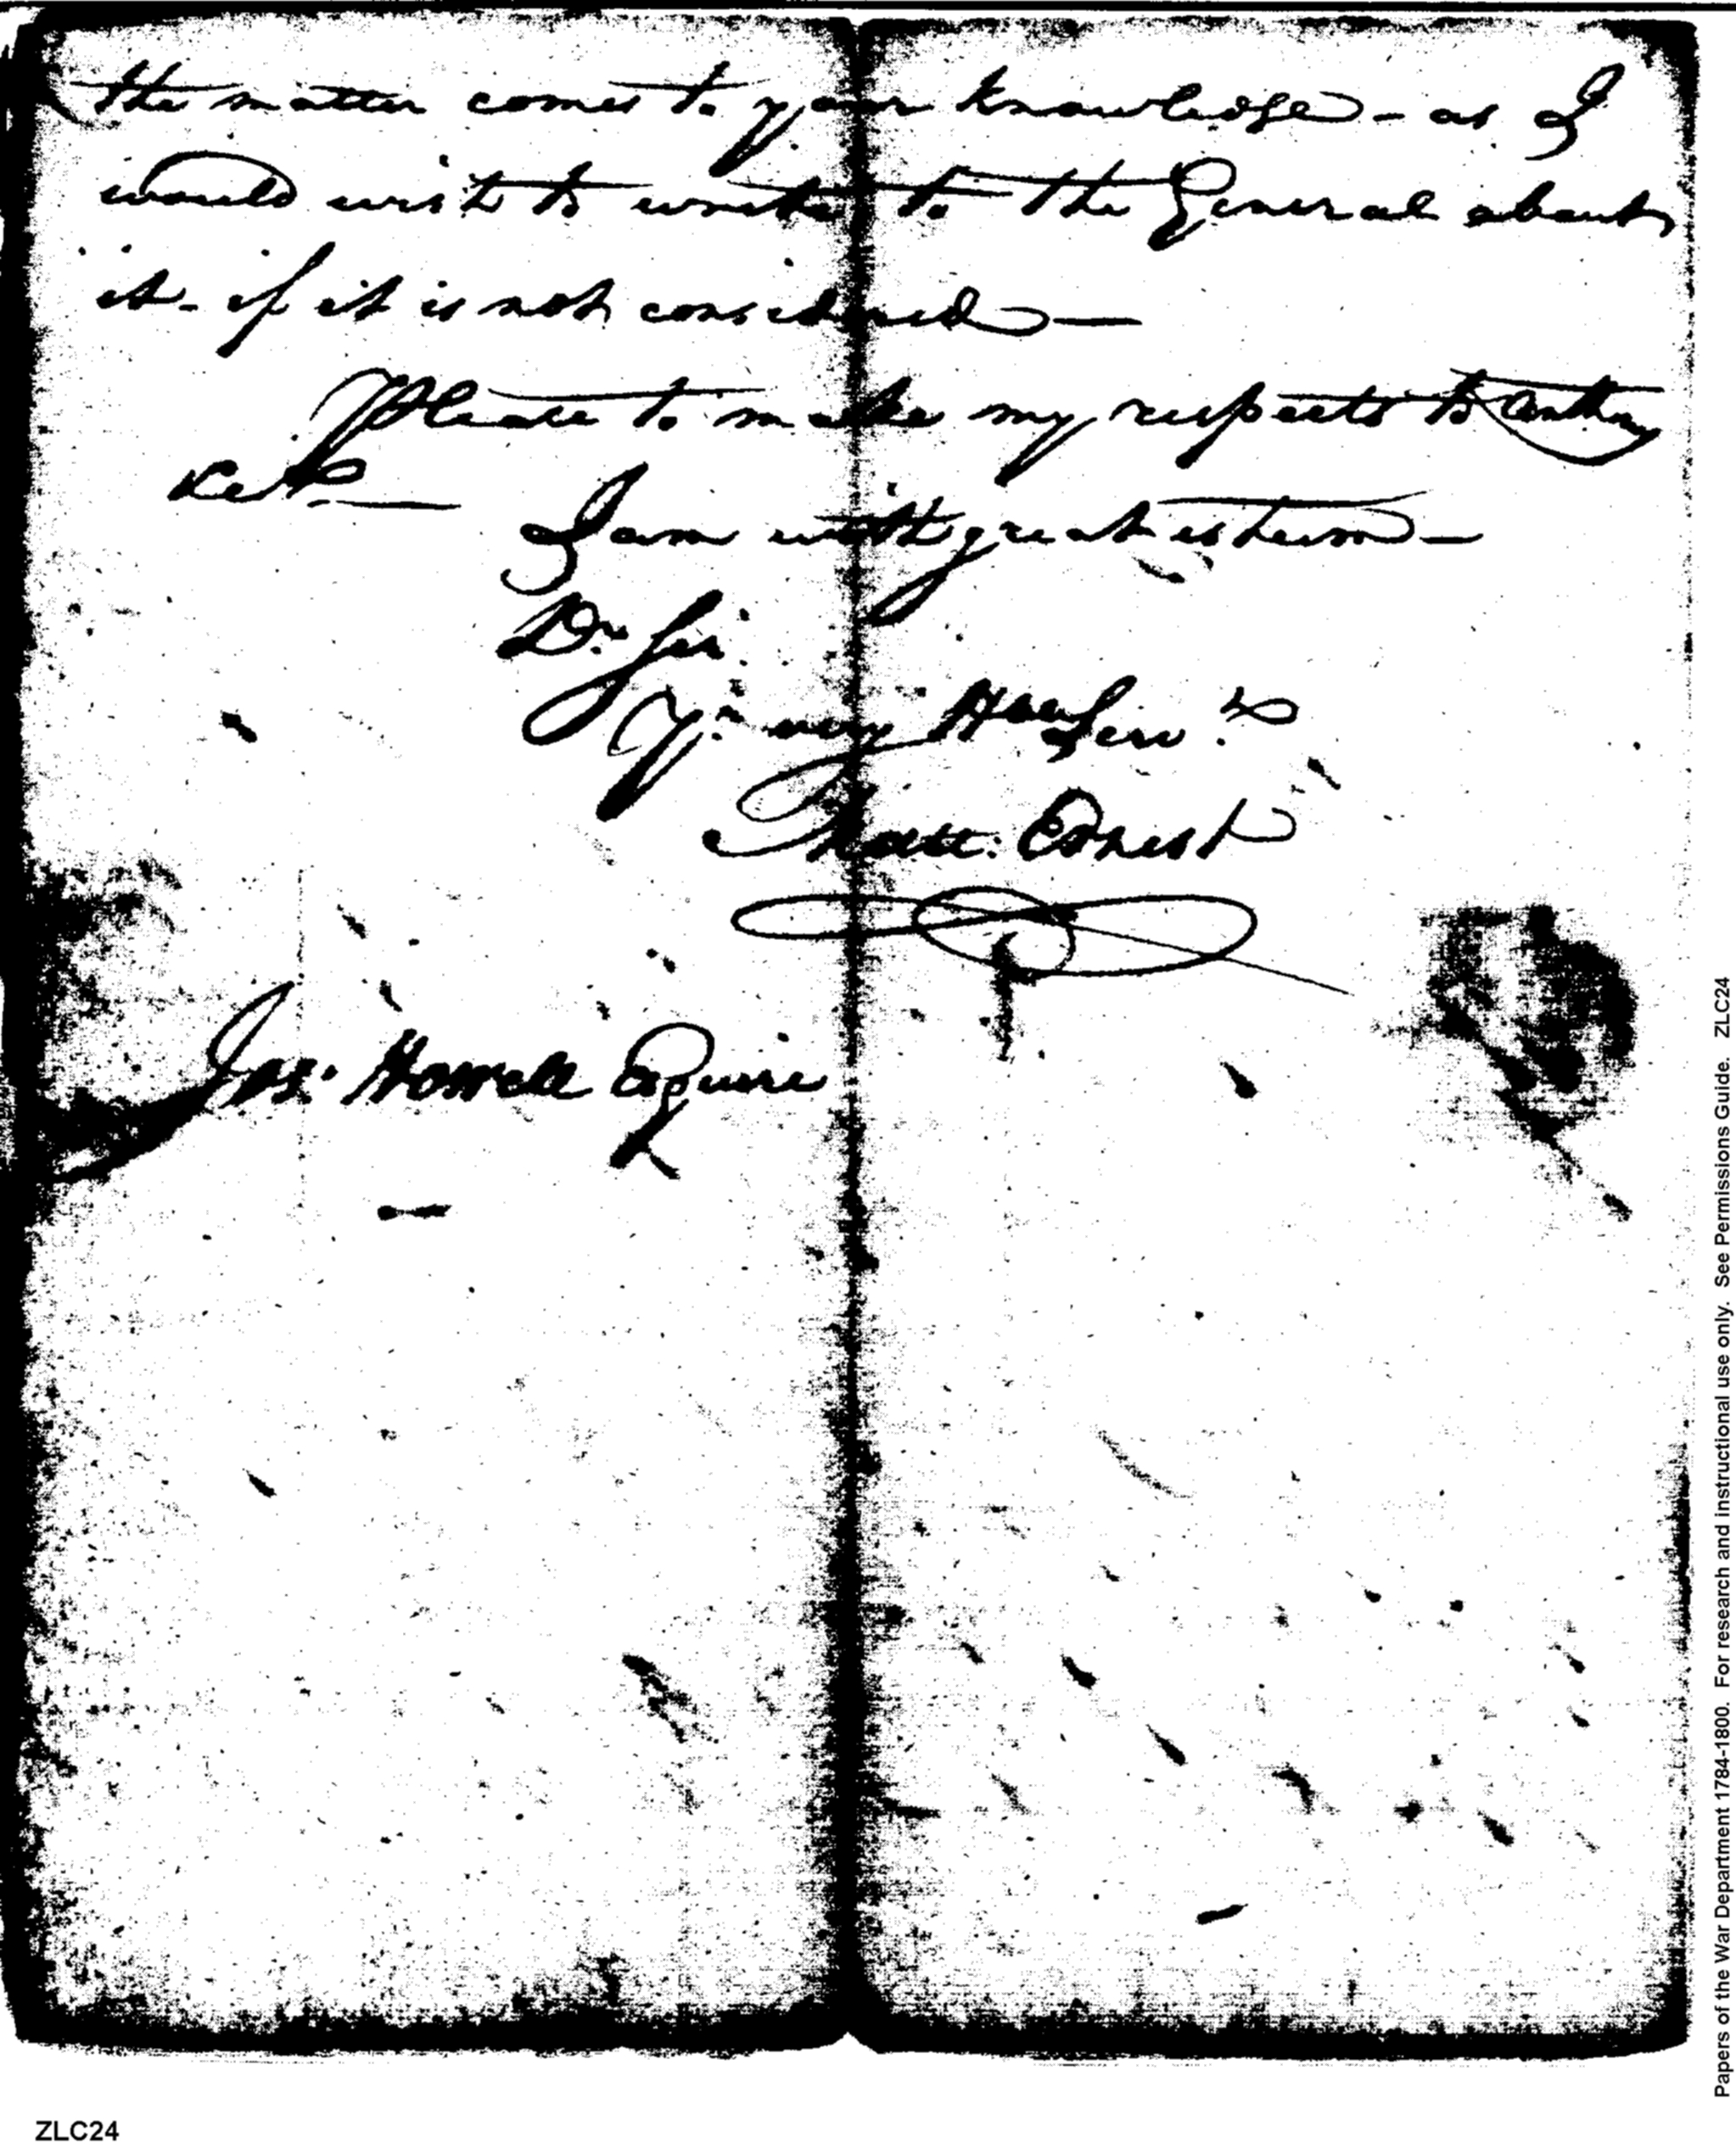 the matter comes to your knowledge - as I
would wish to write to the General about
it - if it is not considered —
Please to make my respects to
I am with great esteem —
Dr. Sir
Yr. very Hble Servt.
Matt: Ernest
Jos: Howell Esquire
Papers of the War Department 1784-1800. For research and instructional use only. See Permissions Guide. ZLC24
ZLC24